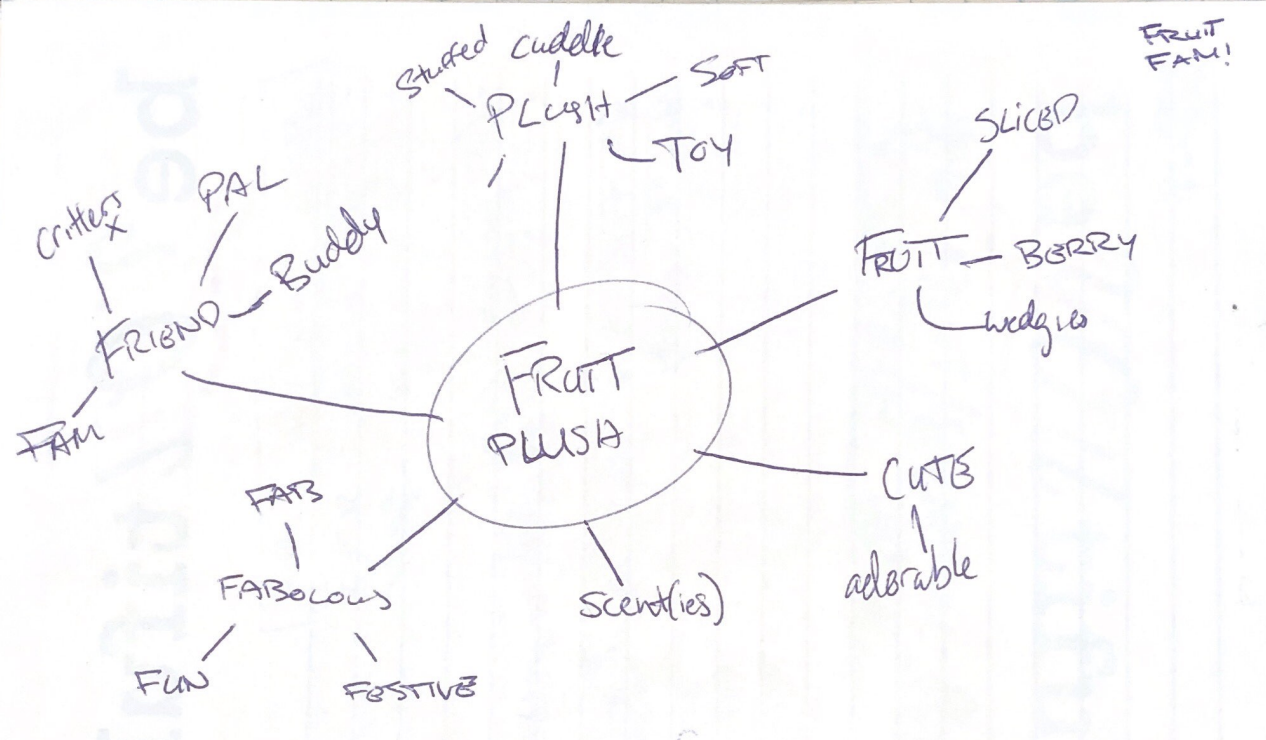 FRUIT
FAM!
Stuffed
cuddle
PLUSH
SOFT
TOY
SLICED
critters
PAL
Buddy
FRUIT
BERRY
wedgies
FRIEND
FAM
FRUIT
PLUSH
CUTE
adorable
FAB
FABOLOUS
scent(ies)
FUN
FESTIVE